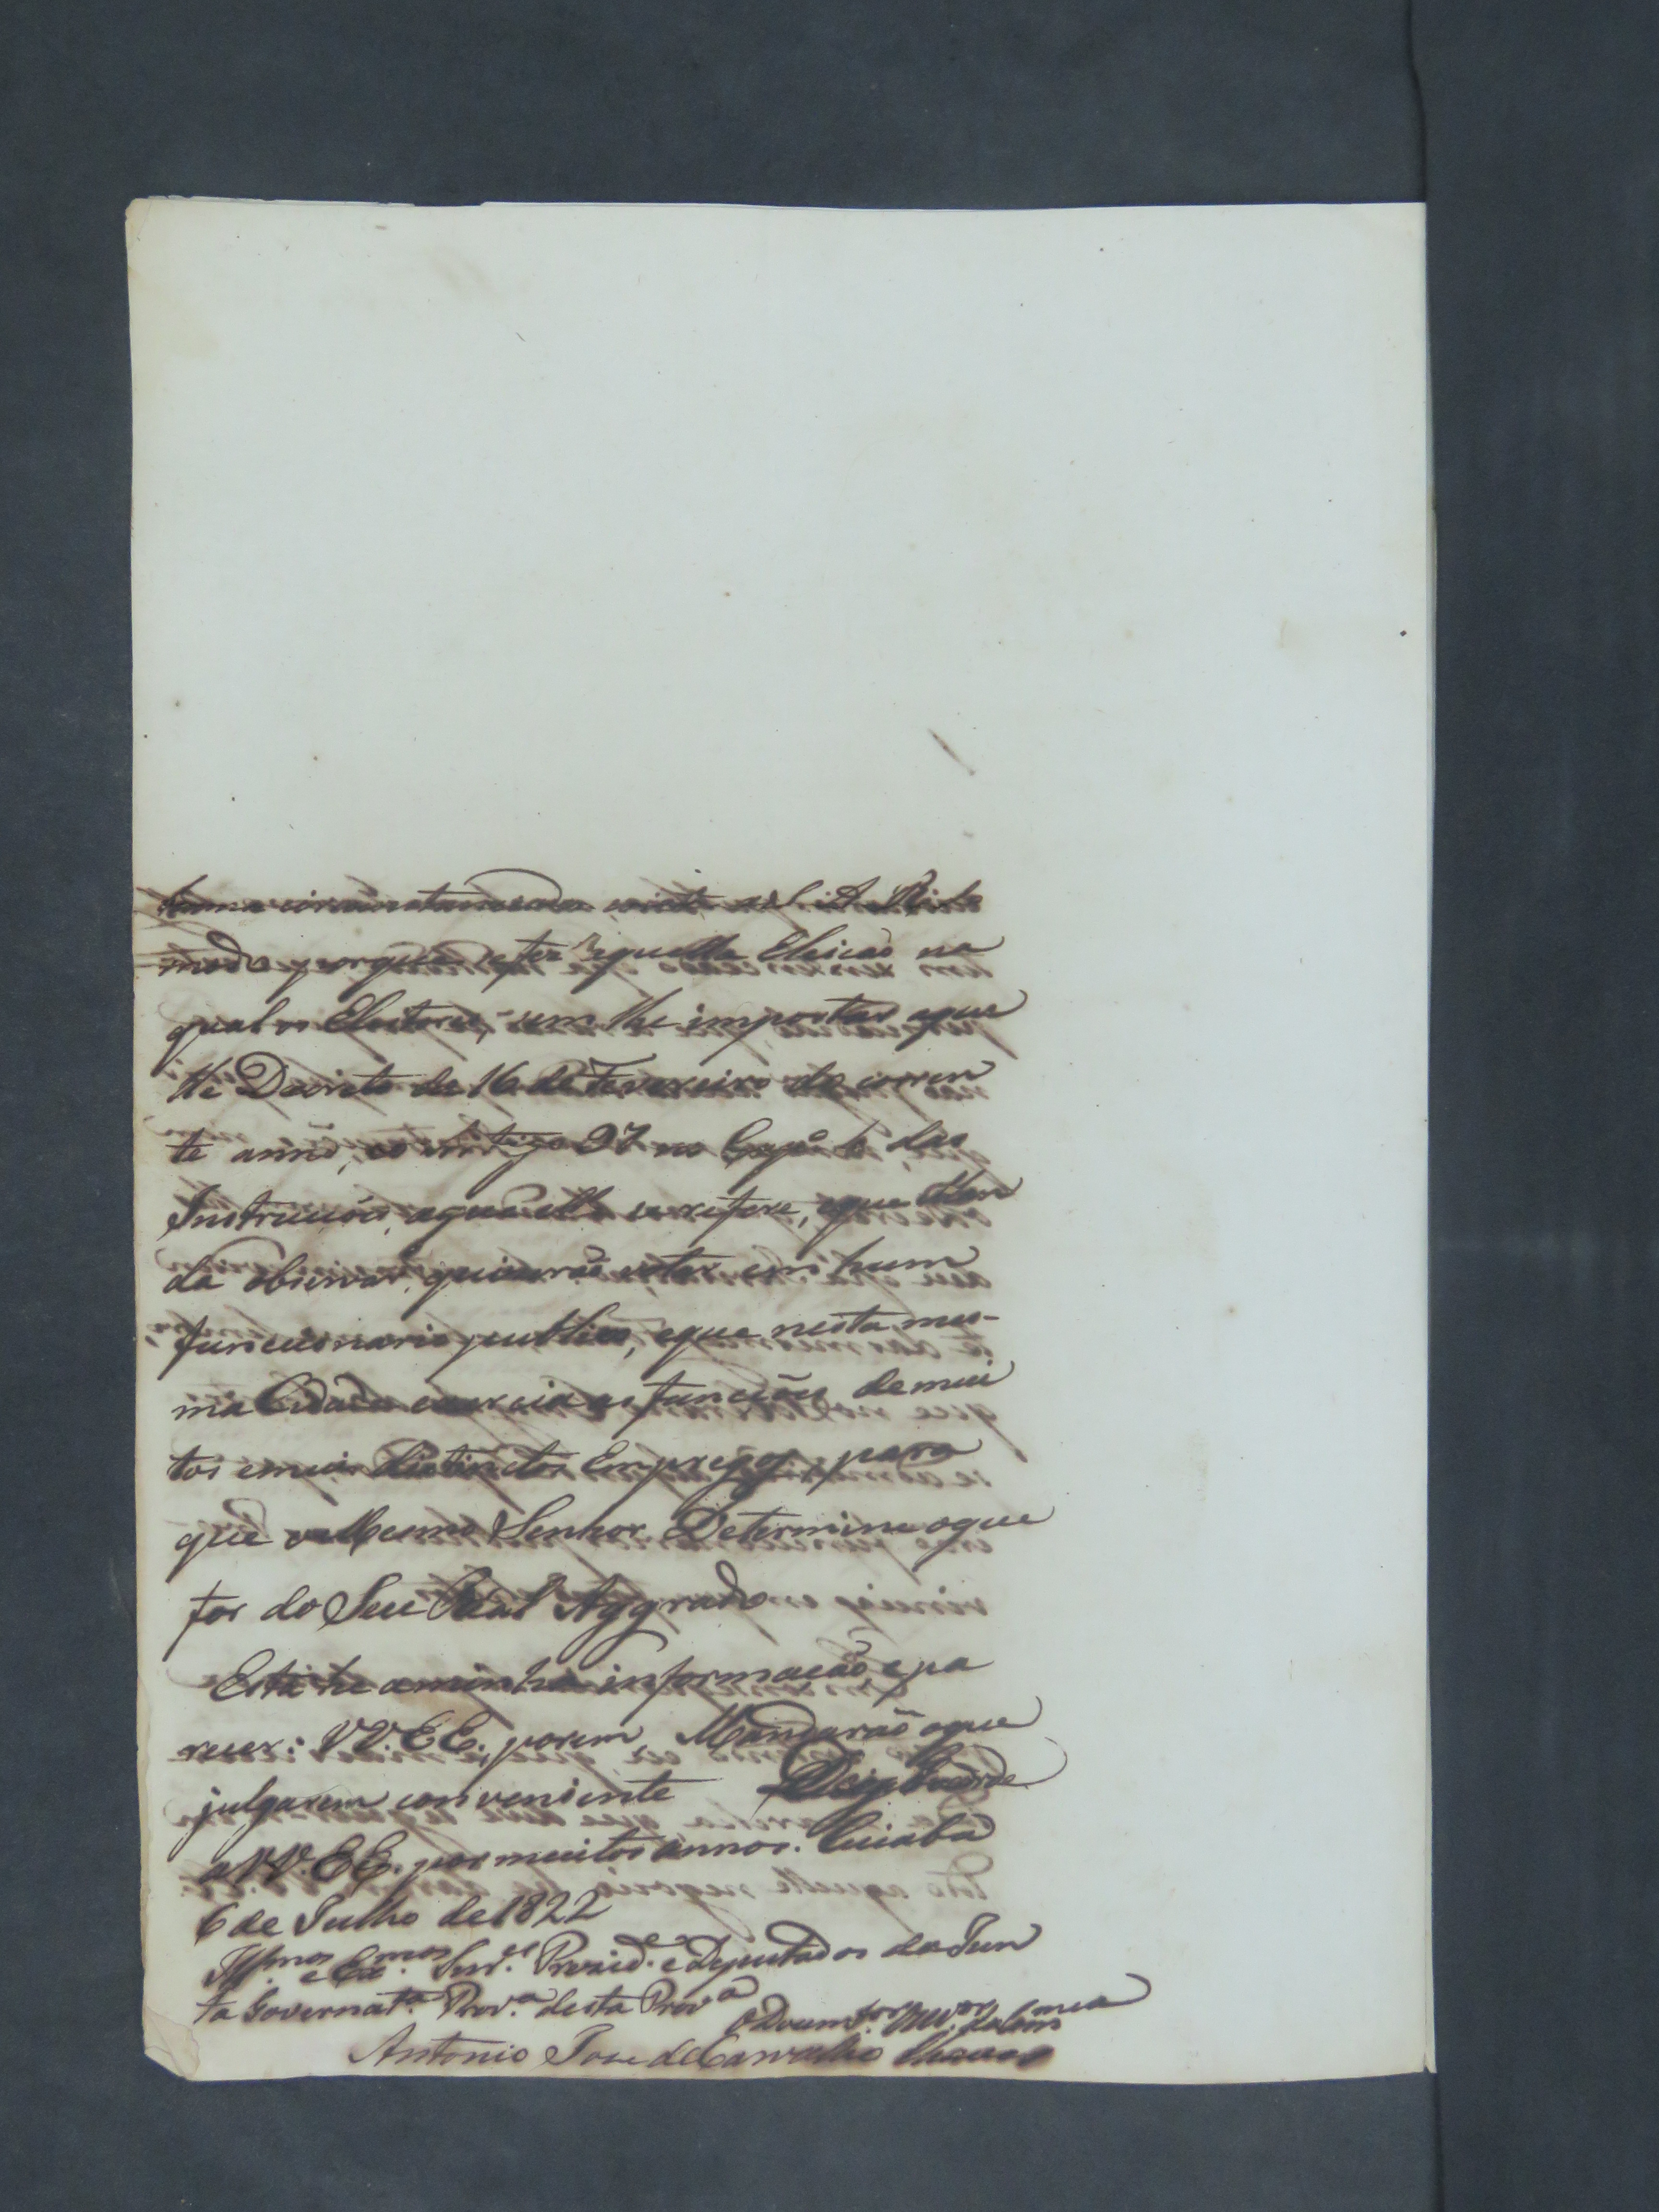 huma circunstanciada conta a S. A. R. do
modo porque se fez aquella Eleicaõ na
qual os Eleitores, sem lhe importar aque
lle Decreto de 16 de Fevereiro do corren
te anno, e o Artigo 37 no Cap.º 6 das
Instrucções, aque elle se refere, eque Man
da observar, quizeraõ votar em hum
funccionario publico, eque nesta mes-
ma Cidade exercia as funcções de mui
tos e mui distinctos Empregos, para
que o Mesmo Senhor Determine oque
for do Seu Real Aggrado
Esta he aminha informacaõ, e pa
recer: VV. EE. porem, Mandaraõ oque
julgarem conveniente Deos Guarde
a VV. EE. por muitos annos. Cuiabá
6 de Julho de 1822
Ill.mos e Ex.mos Snr.es Prezid.e e Deputados da Jun
ta Governat.a Prov.a desta Prov.a
O Dezem.or Ouv.or da Com.ca
Antonio Jose de Carvalho Chaves